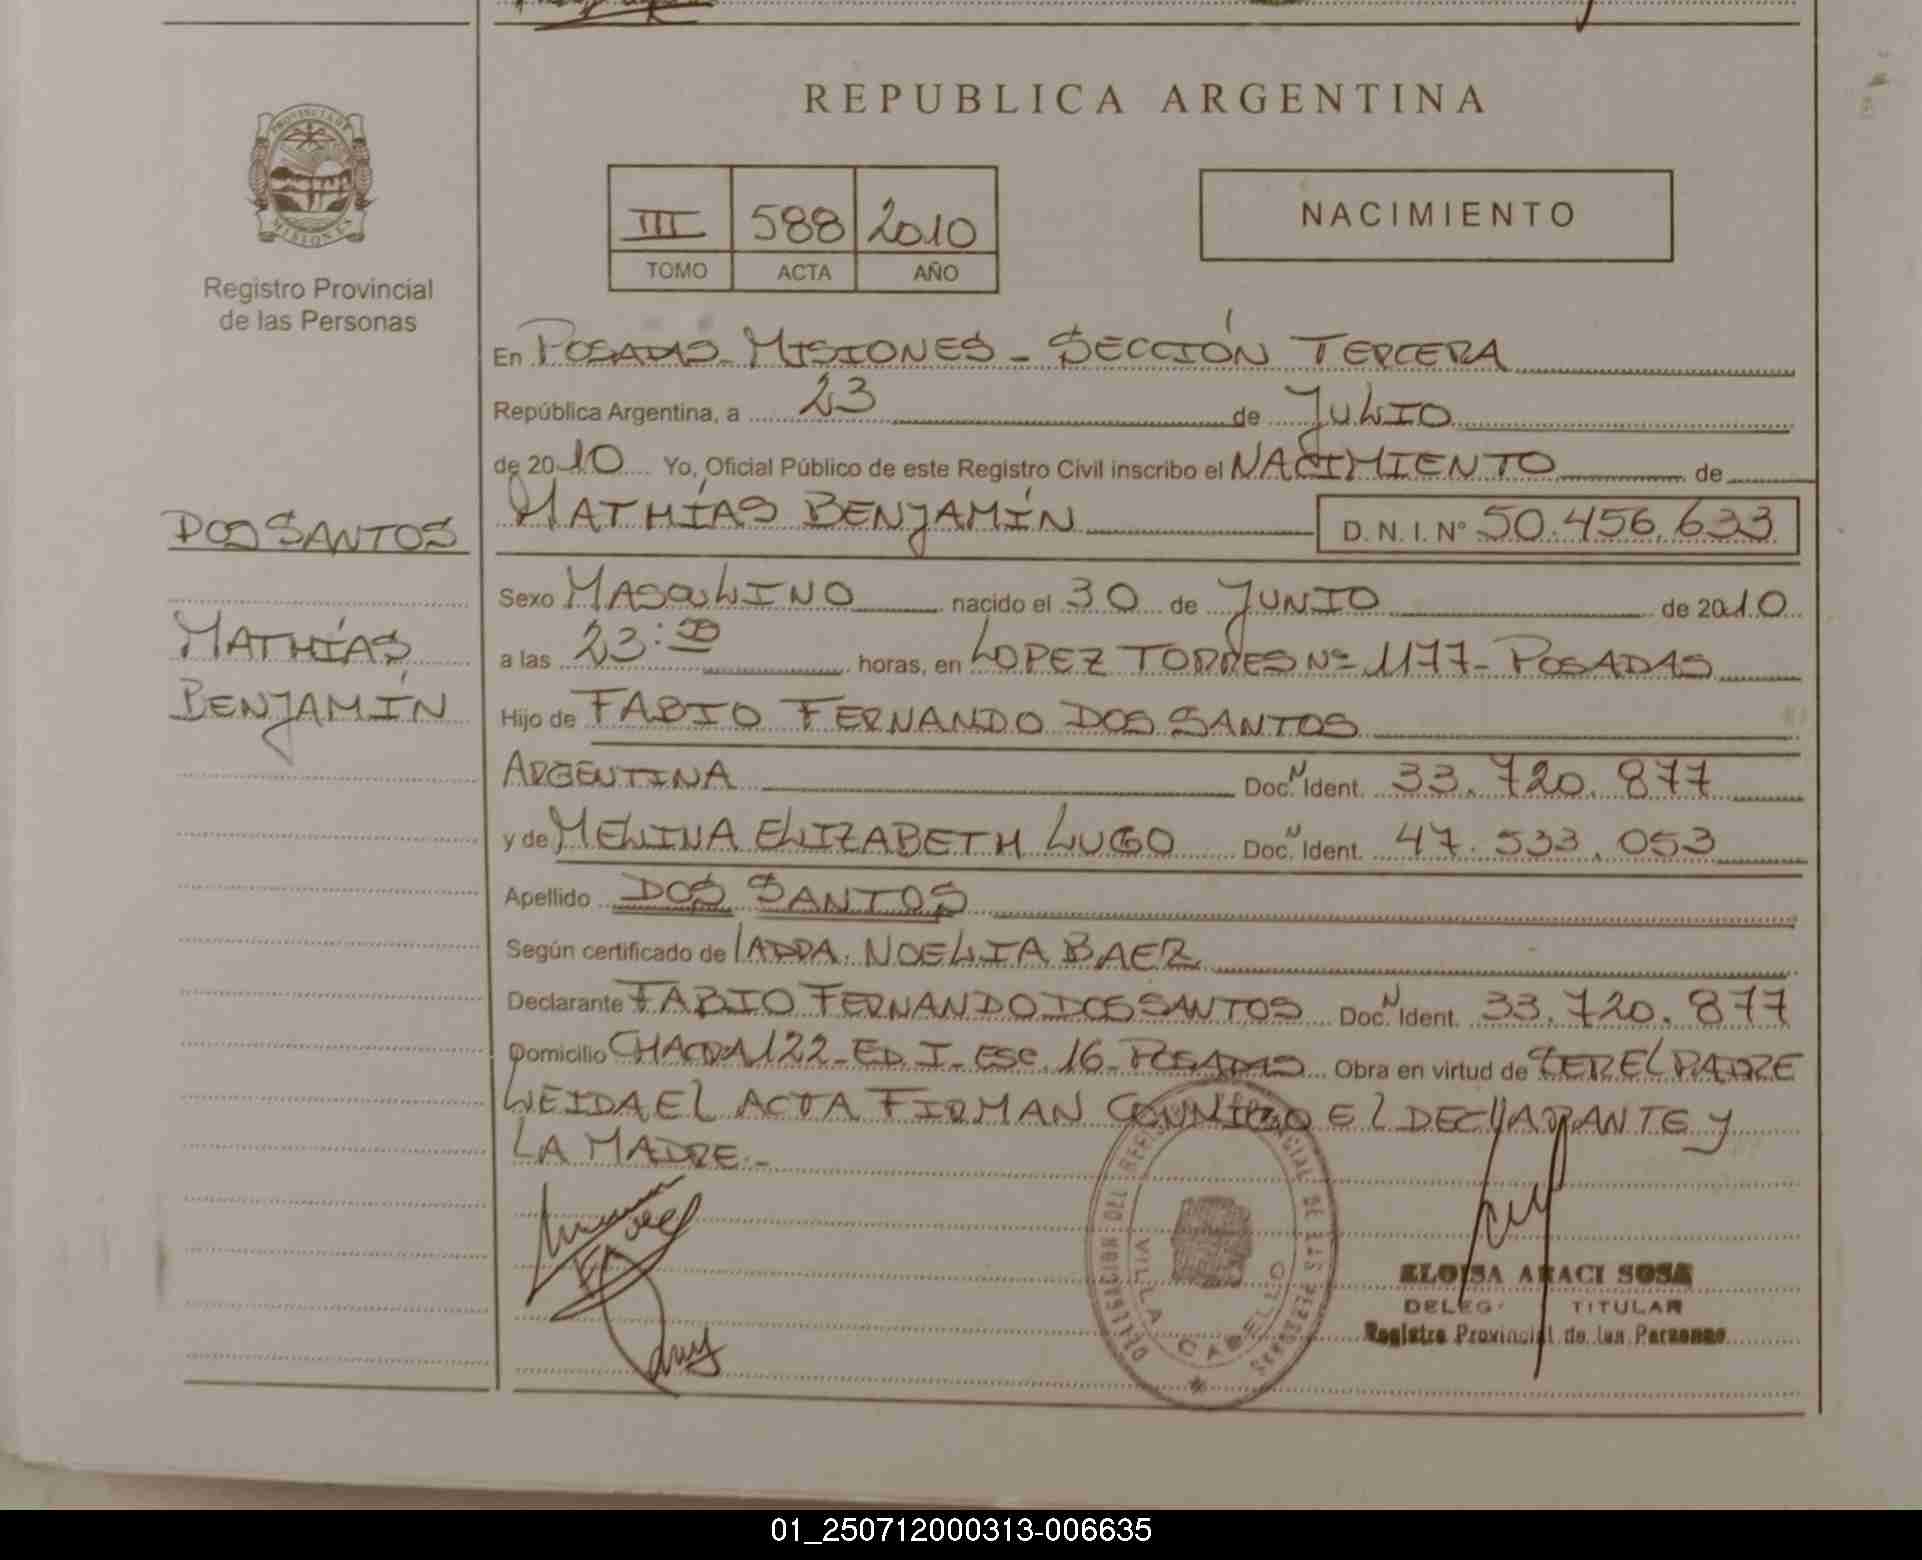 REPUBLICA ARGENTINA
PROVINCIA DE
MISIONES
Registro Provincial
de las Personas
III 588 2010
TOMO ACTA AÑO
NACIMIENTO
En POSADAS - MISIONES - SECCIÓN TERCERA
República Argentina, a 23 de JULIO
de 2010 Yo, Oficial Público de este Registro Civil inscribo el NACIMIENTO de
MATHÍAS BENJAMÍN D. N. I. Nº 50.456.633
DOS SANTOS
MATHÍAS
BENJAMÍN
Sexo MASCULINO nacido el 30 de JUNIO de 2010
a las 23:00 horas, en LOPEZ TORRES Nº 1177 - POSADAS
Hijo de FABIO FERNANDO DOS SANTOS
ARGENTINA Doc. N Ident. 33.720.877
y de MELINA ELIZABETH LUGO Doc. N Ident. 47.533.053
Apellido DOS SANTOS
Según certificado de LA DRA. NOELIA BAEZ
Declarante FABIO FERNANDO DOS SANTOS Doc. N Ident. 33.720.877
Domicilio CHACRA 122 - ED. I - ESC. 16 - POSADAS Obra en virtud de SER EL PADRE
LEIDA EL ACTA FIRMAN CONMIGO EL DECLARANTE Y
LA MADRE.-
DELEGACION DEL REGISTRO PROVINCIAL DE LAS PERSONAS
VILLA CABELLO
ELOISA ARACI SOSA
DELEG. TITULAR
Registro Provincial de las Personas
01_250712000313-006635